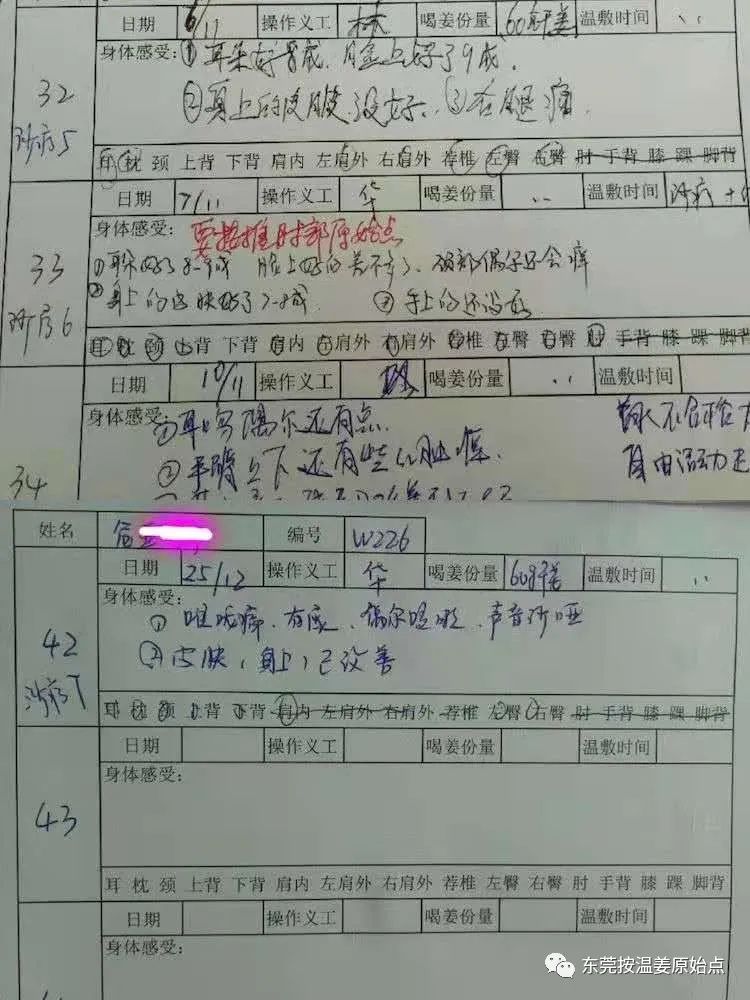 日期 6/11 操作义工 林 喝姜份量 60克干姜 温敷时间 ..
身体感受: ① 耳朵好 成. 脸上好了9成.
32 ② 身上的皮肤没好. ③ 右腿痛.
治疗5
耳 枕 颈 上背 下背 肩内 左肩外 右肩外 荐椎 左臀 右臀 肘 手背 膝 踝 脚背
日期 7/11 操作义工 华 喝姜份量 .. 温敷时间
身体感受: 要按推肘部原始点
33 ① 耳朵好了8-9成 脸上好的差不多了. 颈部偶尔还会痒
② 身上的皮肤好了7-8成 ③ 手上的还没好
治疗6
耳 枕 颈 上背 下背 肩内 左肩外 右肩外 荐椎 左臀 右臀 肘 手背 膝 踝 脚背
日期 10/11 操作义工 喝姜份量 .. 温敷时间
身体感受: ① 耳 偶尔还有点.
② 手臂上下还有些 痒.
自由活动
34
姓名 编号 W226
日期 25/12 操作义工 华 喝姜份量 60g干姜 温敷时间 ..
身体感受:
① 喉咙痒. 有痰. 偶尔咳嗽. 声音沙哑
42 ② 皮肤(身上)已改善
治疗7
耳 枕 颈 上背 下背 肩内 左肩外 右肩外 荐椎 左臀 右臀 肘 手背 膝 踝 脚背
日期 操作义工 喝姜份量 温敷时间
身体感受:
43
耳 枕 颈 上背 下背 肩内 左肩外 右肩外 荐椎 左臀 右臀 肘 手背 膝 踝 脚背
日期 操作义工 喝姜份量 温敷时间
身体感受:
东莞按温姜原始点